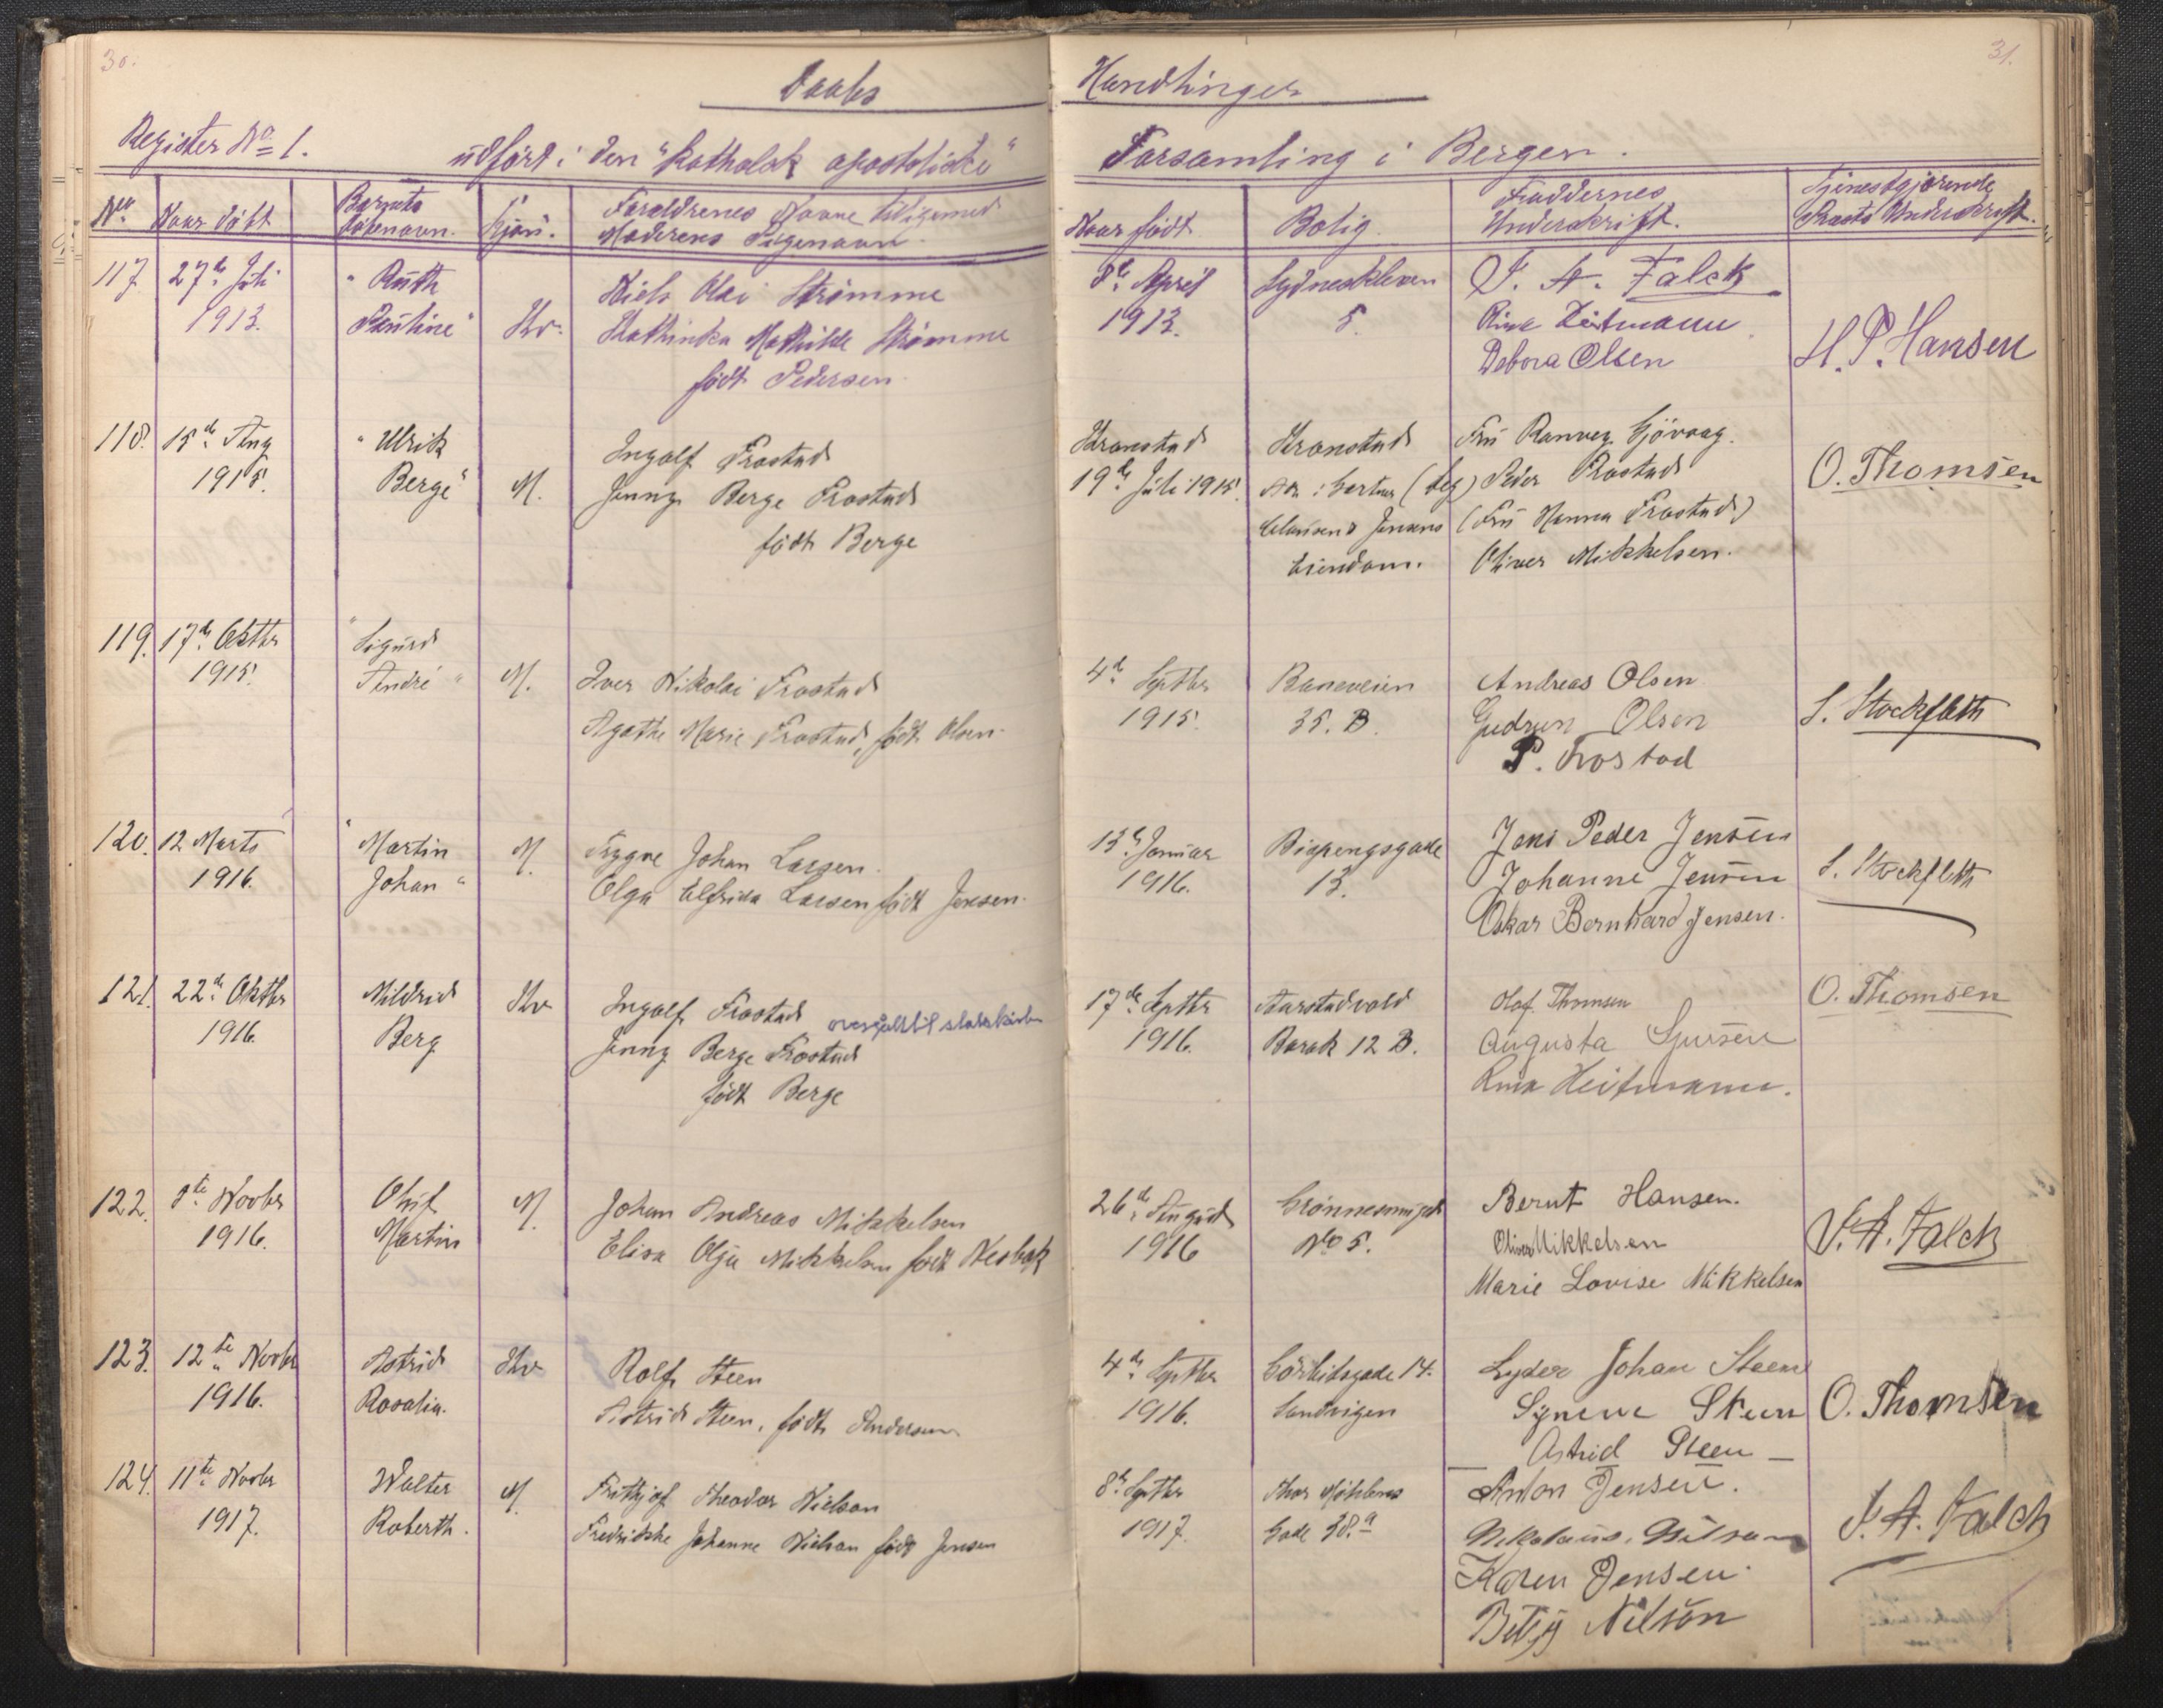 30.
31.
Daabs Handlinger
Register No 1. udført i den "katholsk apostoliske" Forsamling i Bergen.
No
Naar døbt
Barnets
døbenavn.
Kjøn.
Forældrenes Navne tilligemed
Moderens Pigenavn.
Naar født
Bolig
Faddernes
Underskrift.
Tjenestgjørende
Præsts Underskrift.
117. 27de Juli
1913.
"Ruth
Pauline"
Kv.
Niels Olai Strømme
Kathinka Mathilde Strømme
født Pedersen.
8de April
1913.
Sydneskleven
5.
J. A. Falck
Rina Heitmann
Debora Olsen
H. P. Hansen
118. 15de Aug
1915.
"Ulrik
Berge"
M.
Ingolf Frostad
Jenny Berge Frostad
født Berge
Kronstad
19de Juli 1915.
Kronstad
Adr: Gartner
Clausen & Jensens
Eiendom.
Fru Ranveg Gjövaag.
Peder Frostad
(Fru Hanna Frostad)
Oliver Mikkelsen.
O. Thomsen
119. 17de Oktbr
1915.
"Sigurd
André"
M.
Iver Nikolai Frostad
Agathe Marie Frostad, født Olsen.
4de Septbr
1915.
Baneveien
35. B.
Andreas Olsen
Gudrun Olsen
P. Frostad
S. Stockfleth
120. 12 Marts
1916.
"Martin
Johan"
M.
Trygve Johan Larsen.
Olga Elfrida Larsen født Jensen.
13de Januar
1916.
Bispengsgade
13.
Jens Peder Jensen
Johanne Jensen
Oskar Bernhard Jensen.
S. Stockfleth
121. 22de Oktbr
1916.
Mildrid
Berg
Kv
Ingolf Frostad
overgått til statskirken
Jenny Berge Frostad
født Berge
17de Septbr
1916.
Aarstadvold
Barak 12 B.
Olaf Thomsen
Augusta
Rina Heitmann.
O. Thomsen
122. Novbr
1916.
Oluf
Martin
M.
Johan Andreas Mikkelsen
Elisa Olga Mikkelsen født Nesbak
26de August
1916
No 5.
Bernt Hansen.
Oliver Mikkelsen
Marie Lovise Mikkelsen
J. A. Falck
123. 12te Novbr
1916.
Astrid
Rosalia.
Kv
Rolf Steen
Astrid Steen, født Andersen
4de Septbr
1916.
14.
Sandvigen
Lyder Johan Steen
Synneve Steen
Astrid Steen
O. Thomsen
124. 11te Novbr
1917.
Walter
Roberth.
M.
Frithjof Theodor Nielson
Fredrikke Johanne Nielson født Jensen
8de Septbr
1917.
Thor Møhlens
Gade 38.a
Anton Jensen.
Nikolaus. Nilson
Karen Jensen.
Betzy Nilson
J. A. Falck